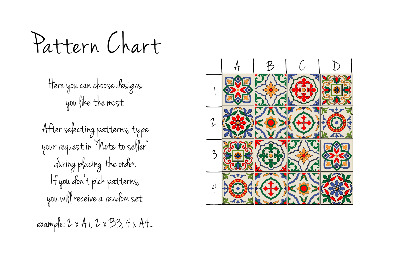 Pattern Chart
Here you can choose designs
you like the most.
After selecting patterns, type
your request in "Note to seller"
during placing the order.
If you don't pick patterns,
you will receive a random set.
example: 2 x A1, 2 x B3, 4 x A4...
A B C D
1
2
3
4